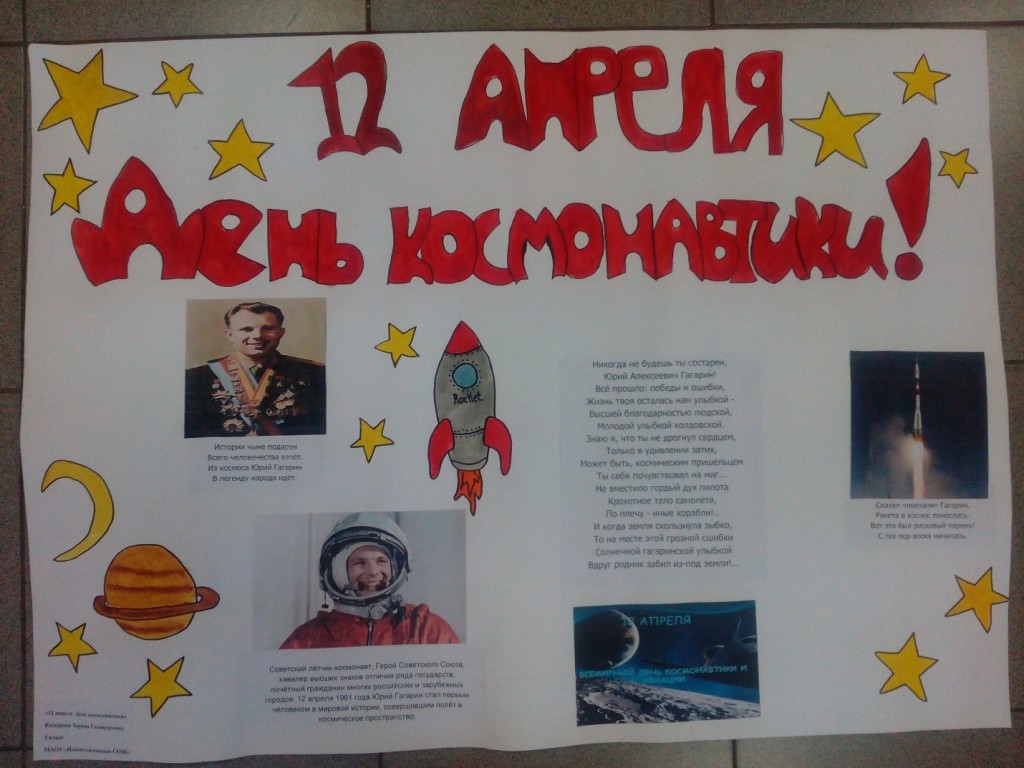 12 Апреля
День космонавтики!
Истории ныне подарен
Всего человечества взлёт.
Из космоса Юрий Гагарин
В легенду народа идёт.
Rocket
Никогда не будешь ты состарен,
Юрий Алексеевич Гагарин!
Всё прошло: победы и ошибки,
Жизнь твоя осталась нам улыбкой -
Высшей благодарностью людской,
Молодой улыбкой колдовской.
Знаю я, что ты не дрогнул сердцем,
Только в удивлении затих,
Может быть, космическим пришельцем
Ты себя почувствовал на миг...
Не вместило гордый дух пилота
Крохотное тело самолёта,
По плечу - иные корабли!..
И когда земля скользнула зыбко,
То на месте этой грозной сшибки
Солнечной гагаринской улыбкой
Вдруг родник забил из-под земли!...
Сказал «поехали» Гагарин,
Ракета в космос понеслась.
Вот это был рисковый парень!
С тех пор эпоха началась.
Советский лётчик-космонавт, Герой Советского Союза,
кавалер высших знаков отличия ряда государств,
почётный гражданин многих российских и зарубежных
городов. 12 апреля 1961 года Юрий Гагарин стал первым
человеком в мировой истории, совершившим полёт в
космическое пространство.
12 АПРЕЛЯ
ВСЕМИРНЫЙ ДЕНЬ КОСМОНАВТИКИ И
АВИАЦИИ
«12 апреля- День космонавтики»
МАОУ